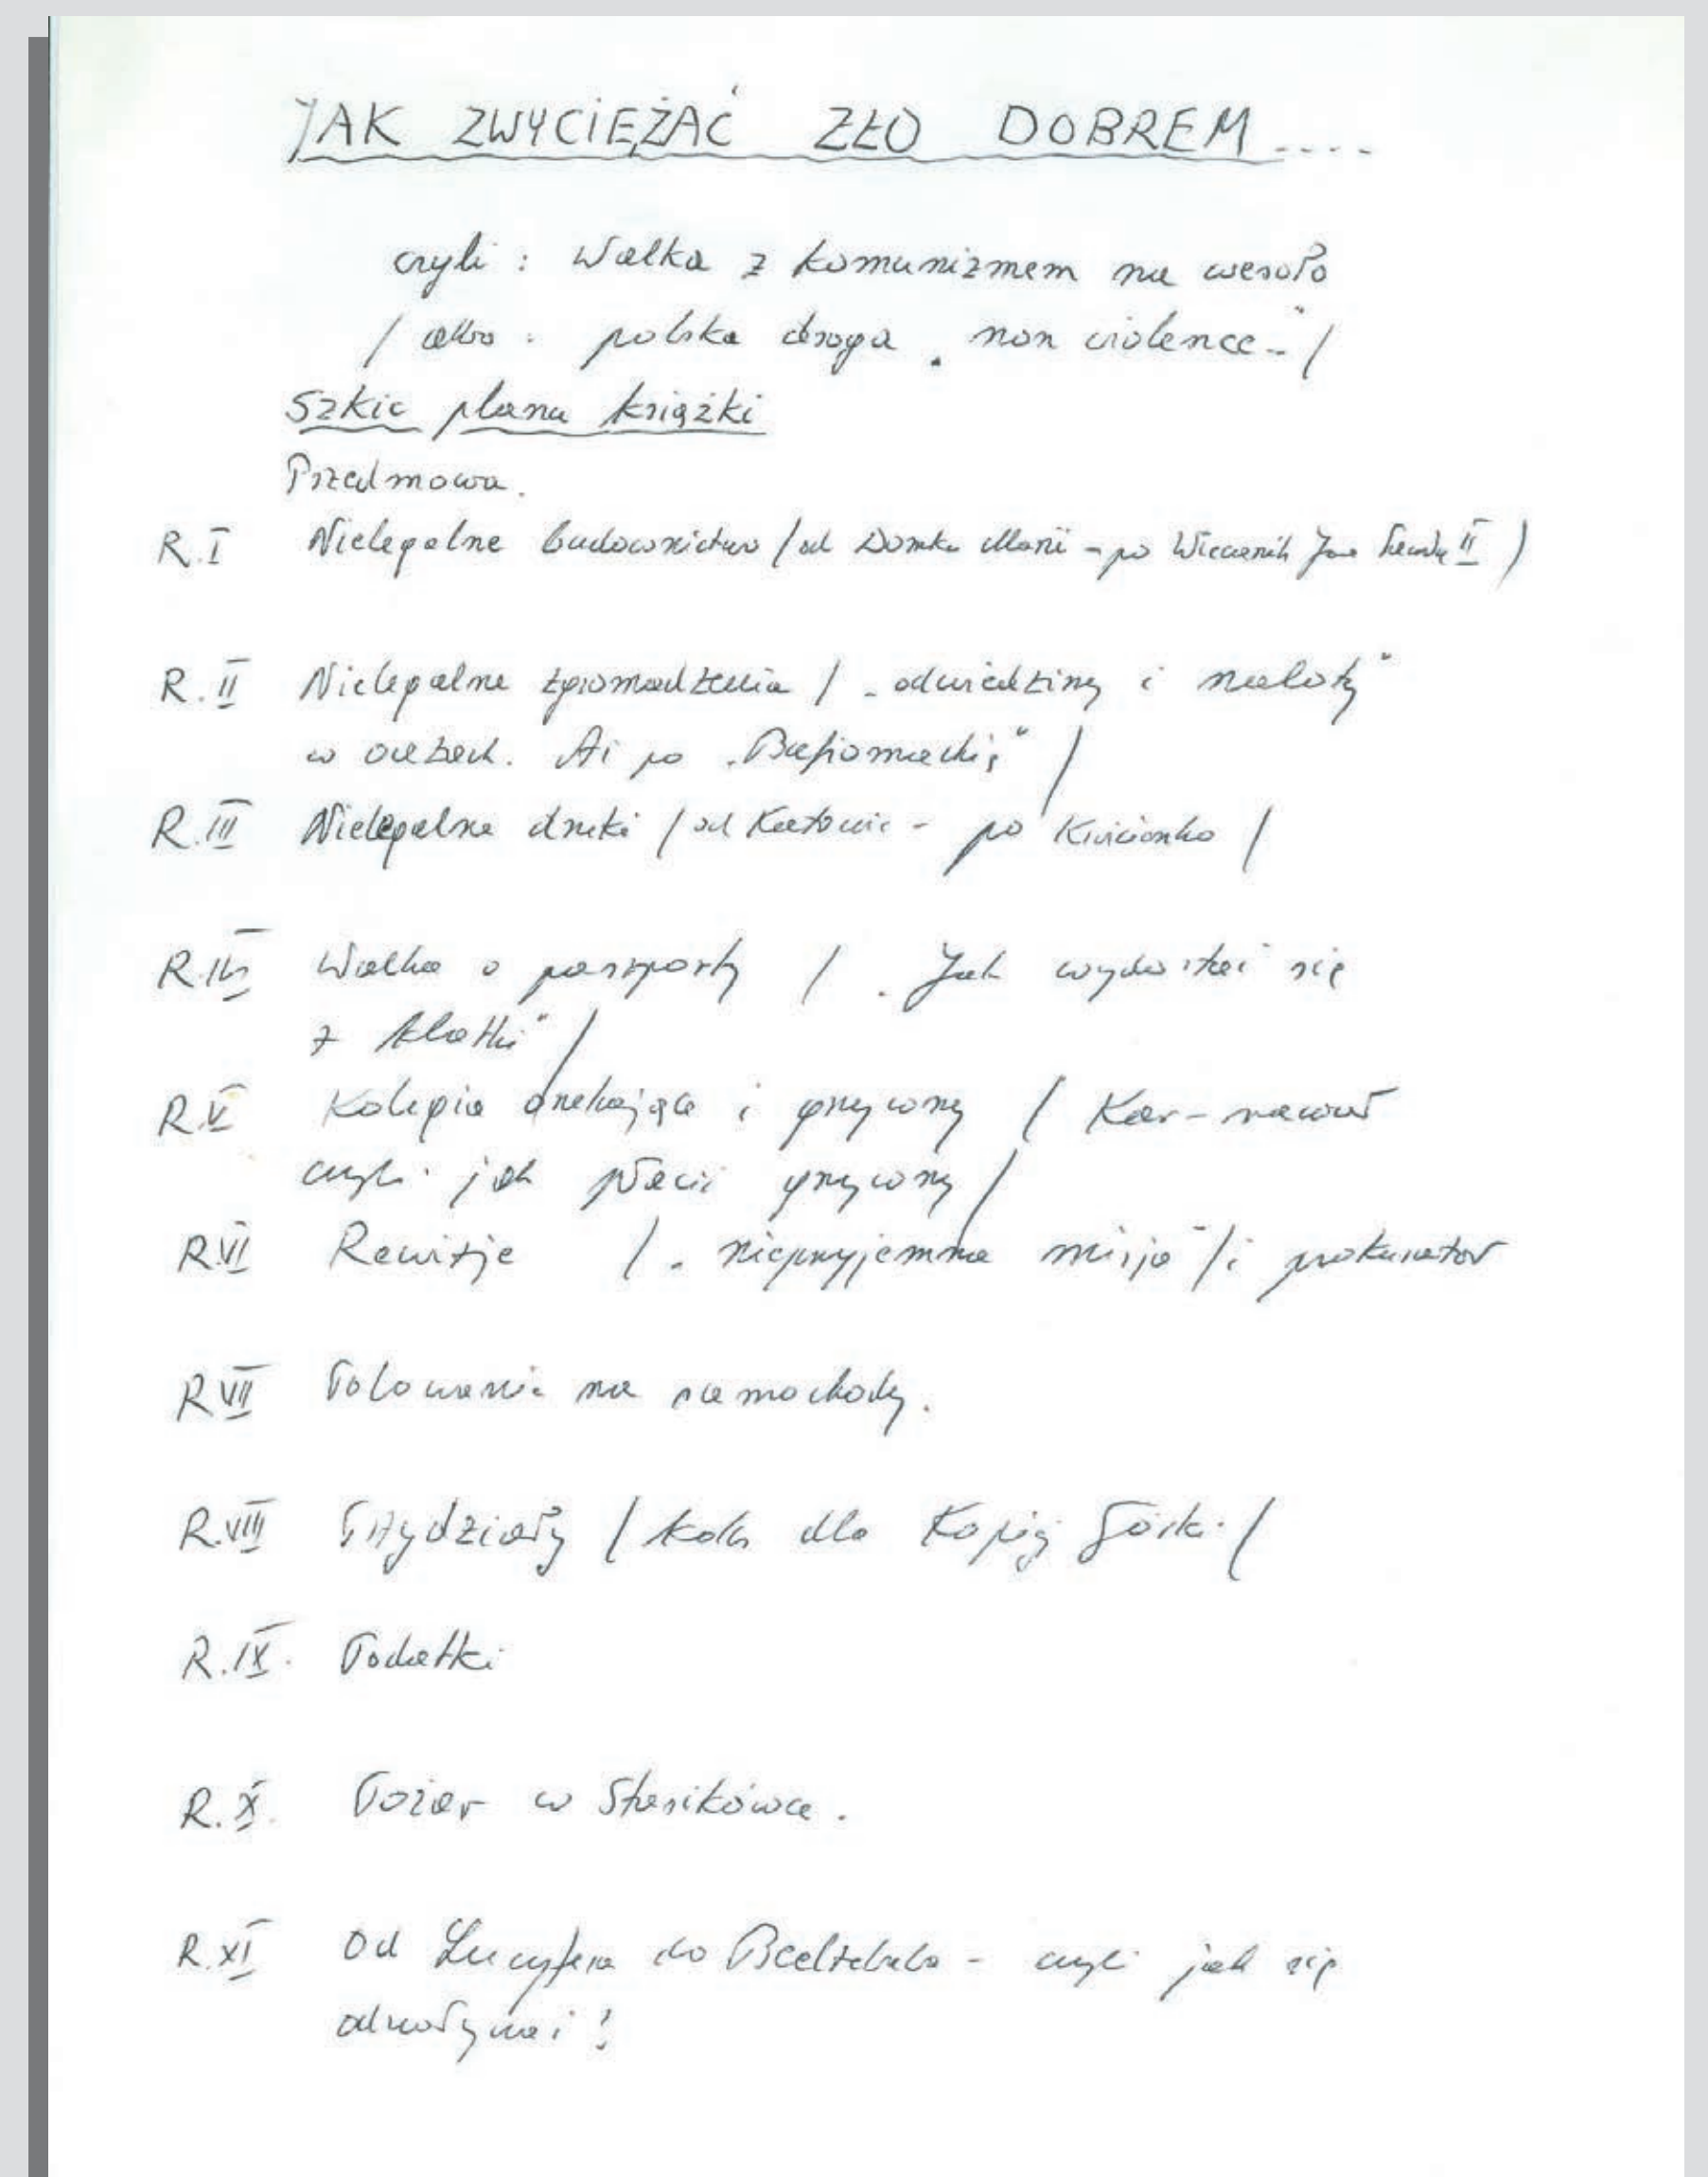 JAK ZWYCIĘŻAĆ ZŁO DOBREM....
czyli : Walka z komunizmem na wesoło
/ albo : polska droga „non violence" /
Szkic planu książki
Przedmowa.
R.I Nielegalne budownictwo / od Domku Marii - po Wieczernik Jana Pawła II )
R.II Nielegalne zgromadzenia / „odwiedziny i naloty"
w oazach. Aż po /
R.III Nielegalne druki / od Katowic - po Kwicionko /
R.IV Walka o paszporty / „Jak wydostać się
z klatki" /
R.V Kolegia orzekające i grzywny / Kar-nawał
czyli jak płacić grzywny /
R.VI Rewizje / „nieprzyjemna misja" / i prokurator
R.VII Polowanie na samochody.
R.VIII Przydziały / koks dla Kopiej Górki /
R.IX. Podatki
R.X. Pożar w Stasikówce.
R.XI Od Lucyfera do Beelzebuba - czyli jak się
odwoływać !